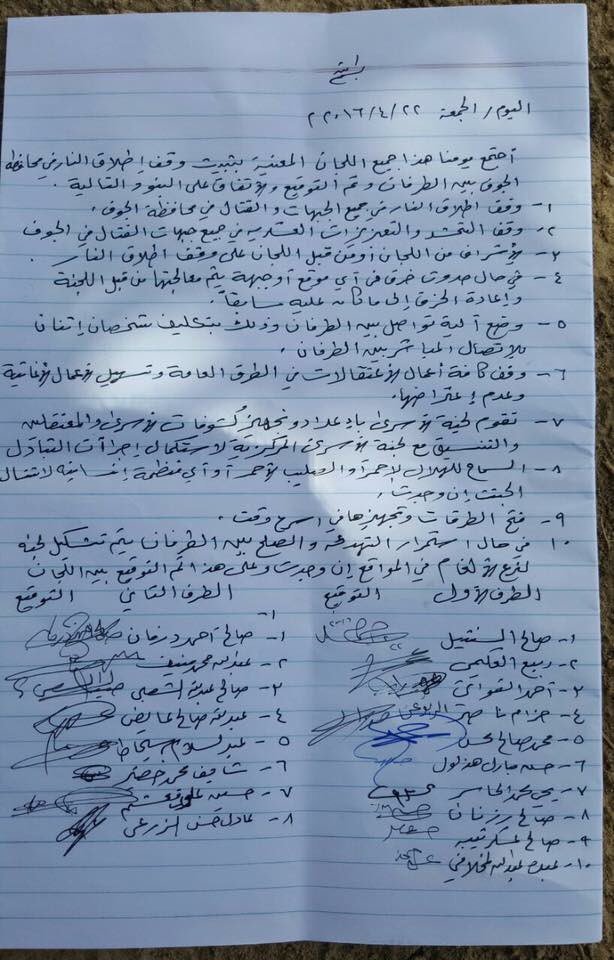 بسم الله
اليوم / الجمعة ٢٢/٤/٢٠١٦م
اجتمع يومنا هذا جميع اللجان المعنية بتثبيت وقف إطلاق النار في محافظة
الجوف بين الطرفان وتم التوقيع والاتفاق على البنود التالية :
١- وقف اطلاق النار في جميع الجبهات والقتال في محافظة الجوف .
٢- وقف التحشد والتعزيزات العسكريه في جميع جبهات القتال في الجوف
٣- الاشراف من اللجان أو من قبل اللجان على وقف اطلاق النار .
٤- في حال حدوث خرق في أي موقع أو جبهة يتم معالجتها من قبل اللجنة
وإعادة الخرق إلى ما كان عليه سابقاً .
٥- وضع آلية تواصل بين الطرفان وذلك بتكليف شخصان إثنان
للاتصال المباشر بين الطرفان .
٦- وقف كافة أعمال الاعتقالات في الطرق العامة وتسهيل الأعمال الاغاثية
وعدم إعتراضها .
٧- تقوم لجنة الأسرى بإعداد وتجهيز كشوفات الأسرى والمعتقلين
والتنسيق مع لجنة الأسرى المركزية لاستكمال إجراءات التبادل
٨- السماح للهلال الاحمر أو الصليب الأحمر أو أي منظمة إنسانيه لانتشال
الجثث إن وجدت .
٩- فتح الطرقات وتجهيزها في اسرع وقت .
١٠- في حال استمرار التهدئة والصلح بين الطرفان يتم تشكيل لجنه
لنزع الألغام في المواقع إن وجدت وعلى هذا تم التوقيع بين اللجان
الطرف الأول التوقيع الطرف الثاني التوقيع
١- صالح السنتيل
٢- ربيع العليمي
٣- احمد
٤- حزام ناصر
٥- محمد صالح محسن
٦- حسن مبارك هذلول
٧- يحي محمد
٨- صالح رزفان
٩- صالح عسكر
١٠- عبده عبدالله
١- صالح احمد درمان
٢- عبدالله محمد منيف
٣- صالح عبدالله الشعبي
٤- عبدالله صالح عايض
٥- عبدالسلام
٦- شايف محمد خضير
٧- حسين علي
٨- عادل حسن الزرعي